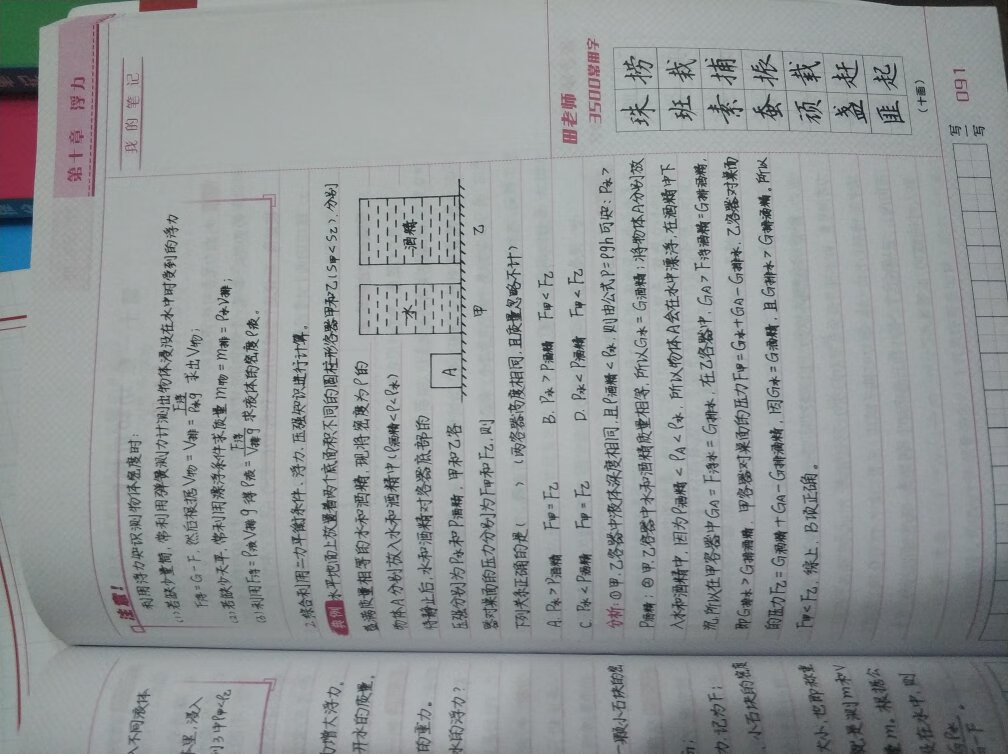 第十章 浮力
我的笔记
注意！
利用浮力知识测物体密度时:
(1)若缺少量筒,常利用弹簧测力计测出物体浸没在水中时受到的浮力
F浮=G-F,然后根据V物=V排=F浮/ρ水g 求出V物;
(2)若缺少天平,常利用漂浮条件求质量 m物=m排=ρ水V排;
(3)利用F浮=ρ液V排g 得 ρ液=F浮/V排g 求液体的密度ρ液。
2.综合利用二力平衡条件、浮力、压强知识进行计算。
典例 水平地面上放置着两个底面积不同的圆柱形容器甲和乙(S甲<S乙),分别
盛满质量相等的水和酒精,现将密度为ρ的
物体A分别放入水和酒精中(ρ酒精<ρ<ρ水)
待静止后,水和酒精对容器底部的
压强分别为P水和P酒精,甲和乙容
器对桌面的压力分别为F甲和F乙,则
水
酒精
A
甲
乙
下列关系正确的是( ) (两容器高度相同,且质量忽略不计)
A. P水>P酒精 F甲=F乙 B. P水>P酒精 F甲<F乙
C. P水<P酒精 F甲=F乙 D. P水<P酒精 F甲<F乙
分析:①甲、乙容器中液体深度相同,且ρ酒精<ρ水,则由公式P=ρgh可知:P水>
P酒精;②甲、乙容器中水和酒精质量相等,所以G水=G酒精;将物体A分别放
入水和酒精中,因为ρ酒精<ρA<ρ水,所以物体A会在水中漂浮,在酒精中下
沉,所以在甲容器中GA=F浮水=G排水,在乙容器中,GA>F浮酒精=G排酒精,
即G排水>G排酒精,甲容器对桌面的压力F甲=G水+GA-G排水,乙容器对桌面
的压力F乙=G酒精+GA-G排酒精,因G水=G酒精,且G排水>G排酒精,所以
F甲<F乙,综上,B项正确。
田老师
3500常用字
珠 捞
班 栽
素 捕
蚕 振
顽 载
盏 赶
匪 起
(十画)
写一写
091
入不同液体
力增大浮力,
开水的质量,
的重力。
水的浮力?
一颗小石块的密
力,记为F;